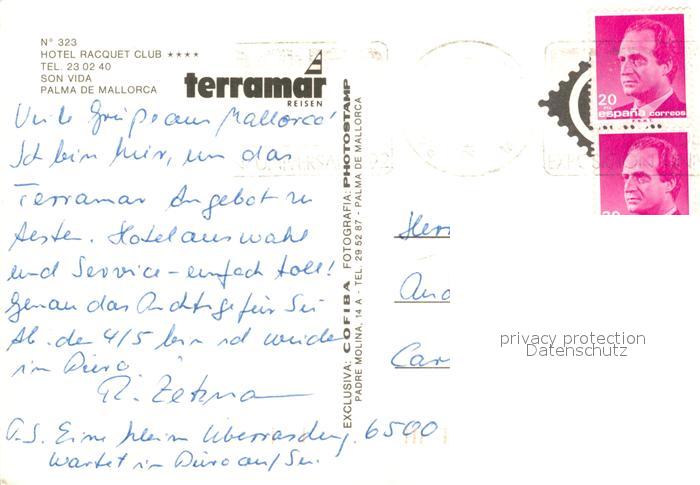 N° 323
HOTEL RACQUET CLUB ★★★★
TEL. 23 02 40
SON VIDA
PALMA DE MALLORCA
terramar
REISEN
Viele Grüße aus Mallorca!
Ich bin hier, um das
Terramar Angebot zu
testen. Hotelauswahl
und Service - einfach toll!
Genau das Richtige für Sie
Ab dem 4/5 bin ich wieder
im Büro
P.S. Eine kleine Überraschung
wartet im Büro auf Sie.
EXCLUSIVA: COFIBA FOTOGRAFIA: PHOTOSTAMP
PADRE MOLINA, 14 A - TEL. 29 52 87 - PALMA DE MALLORCA
20
PTA
españa correos
F.N.M.T.
Her
And
Car
6500
privacy protection
Datenschutz